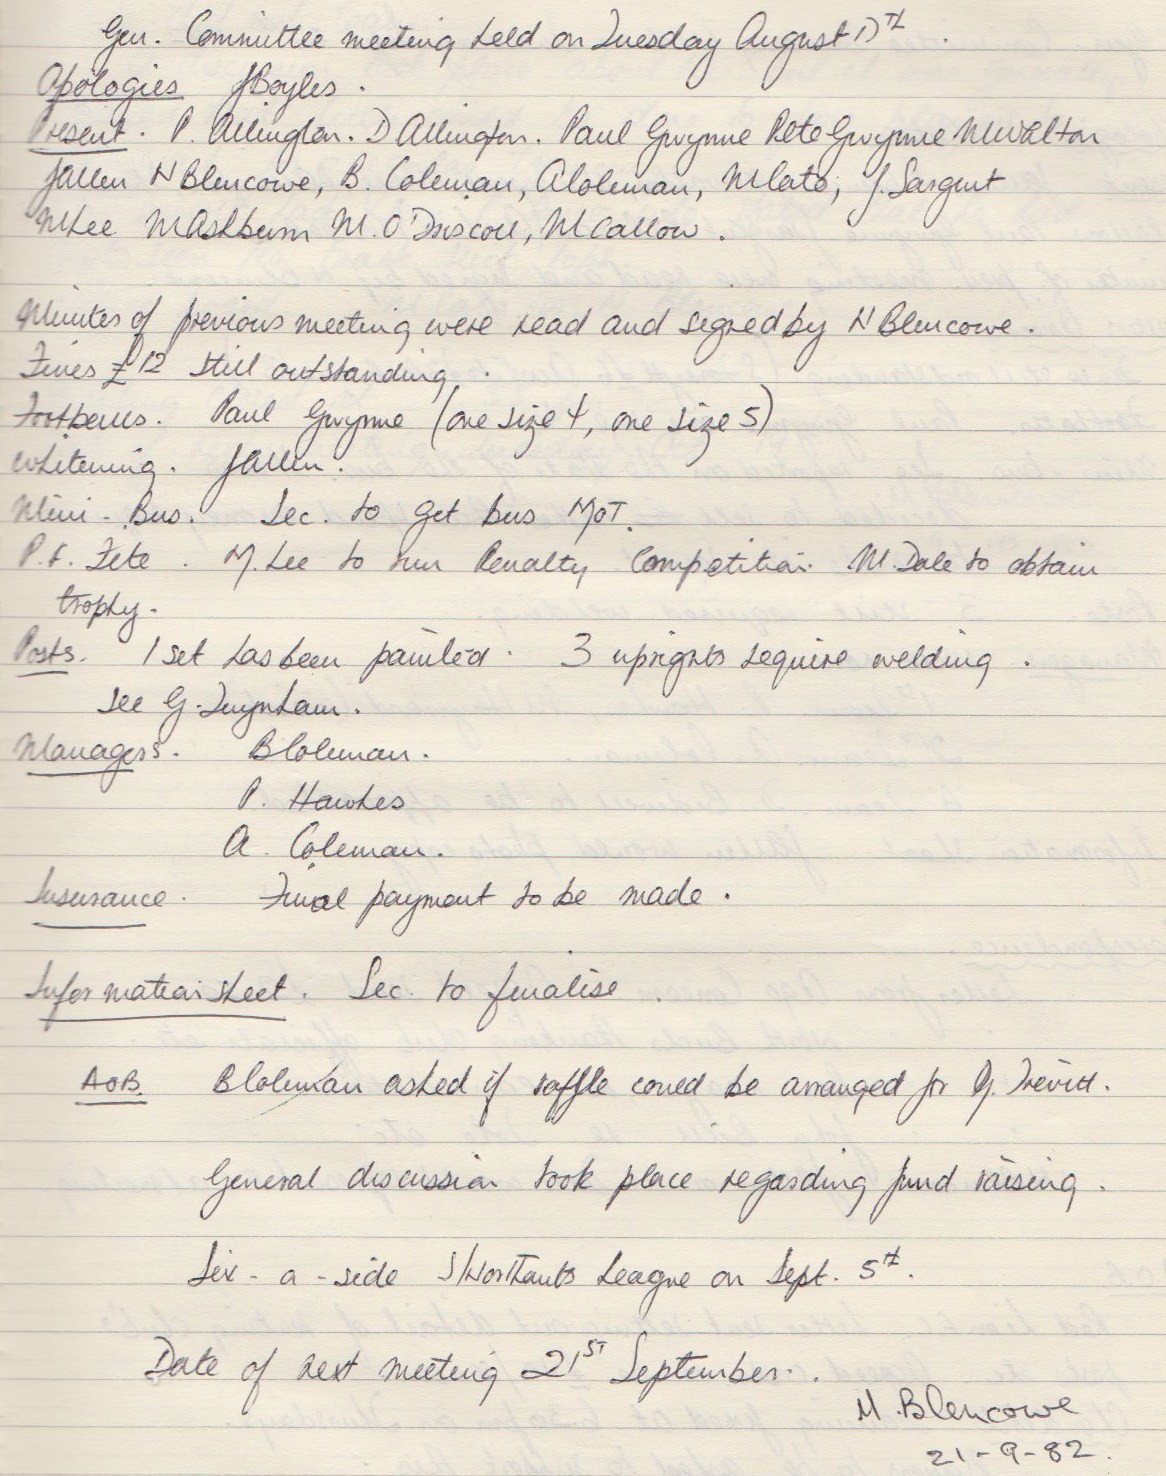 Gen. Committee meeting held on Tuesday August 17TH.
Apologies J Boyles.
Present. P. Allington. D Allington. Paul Gwynne Pete Gwynne M Walton
J Allen N Blencowe, B. Coleman, A Coleman, M Cato, J. Sargent
M Lee M Ashburn M. O'Driscoll, M Callow.
Minutes of previous meeting were read and signed by N Blencowe.
Fines £12 still outstanding.
Footballs. Paul Gwynne (one size 4, one size 5)
Whitening. J Allen.
Mini-Bus. Sec. to get bus MOT.
P.F. Fete. M. Lee to run Penalty Competition. M. Dale to obtain
trophy.
Posts. 1 set has been painted. 3 uprights require welding.
See G. Twynham.
Managers. B Coleman.
P. Hawkes
A. Coleman.
Insurance. Final payment to be made.
Information sheet. Sec. to finalise.
AOB. B Coleman asked if raffle could be arranged for G. Trevitt.
General discussion took place regarding fund raising.
Six-a-side S/Northants League on Sept. 5th.
Date of next meeting 21ST September.
N. Blencowe
21-9-82.